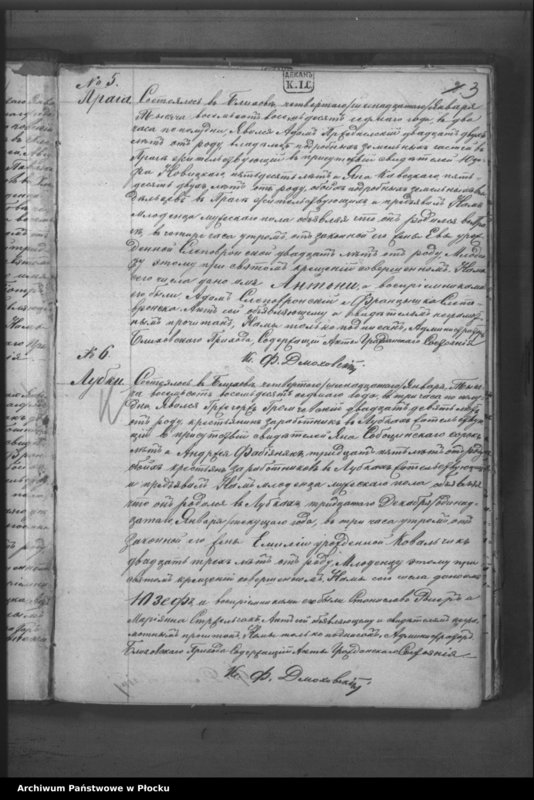 ДЕКАН.
К. II.
3
№ 5.
Прага
Состоялось въ Блиховѣ четвертаго /шестнадцатаго/ Января
тысяча восемьсотъ восемьдесятъ седьмаго года, въ два
часа по полудни. Явился Адамъ двадцать двухъ
лѣтъ отъ роду, владѣлецъ подробныхъ земельныхъ частей въ
Прага жительствующій, въ присутствіи свидѣтелей
Новицкаго пятьдесятъ лѣтъ и Яна пять-
десятъ двухъ лѣтъ отъ роду, обоихъ подробныхъ земельныхъ вла-
дѣльцевъ въ Прагѣ жительствующихъ и предъявилъ Намъ
младенца мужескаго пола объявляя что онъ родился въ Пра-
гѣ, въ четыре часа утромъ отъ законной его жены Евы урож-
денной двадцать лѣтъ отъ роду. Младен-
цу этому при святомъ крещеніи совершенномъ Нами
сего числа дано имя Антони, а воспріемниками
его были Адамъ и Францишка
Актъ сей объявляющему и свидѣтелямъ неграмот-
нымъ прочитанъ, Нами только подписанъ. Администраторъ
Блиховскаго Прихода Содержащій Акты Гражданскаго Состоянія
К. Ф. Дмоховскій
№ 6.
Лубки.
Состоялось въ Блиховѣ четвертаго /шестнадцатаго/ Января, Тыся-
ча восемьсотъ восемьдесятъ седьмаго года, въ три часа по полу-
дни. Явился Гржегоржъ двадцать девять лѣтъ
отъ роду, крестьянинъ заработникъ въ Лубкахъ жительствую-
щій въ присутствіи свидѣтелей Яна Собоцинскаго сорокъ
лѣтъ и Андржея тридцать пять лѣтъ отъ роду
обоихъ крестьянъ заработниковъ въ Лубкахъ жительствующихъ
и предъявилъ Намъ младенца мужескаго пола объявляя
что онъ родился въ Лубкахъ тридцатаго Декабря /одиннад-
цатаго Января/ текущаго года, въ три часа утромъ отъ
законной его жены Емиліи урожденной Ковальчикъ
двадцать трехъ лѣтъ отъ роду. Младенцу этому при
святомъ крещеніи совершенномъ Нами сего числа дано имя
Юзефъ, а воспріемниками его были Станиславъ и
Маріянна Актъ сей объявляющему и свидѣтелямъ негра-
мотнымъ прочитанъ, Нами только подписанъ. Администраторъ
Блиховскаго Прихода Содержащій Акты Гражданскаго Состоянія
К. Ф. Дмоховскій
Archiwum Państwowe w Płocku